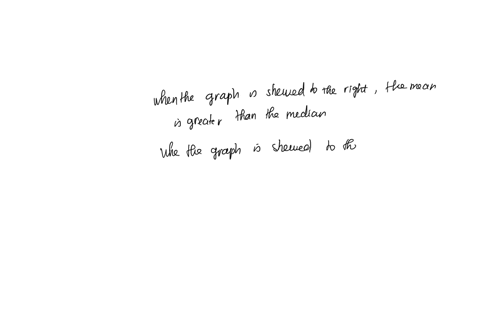 when the graph is skewed to the right, the mean
is greater than the median
whe the graph is skewed to th